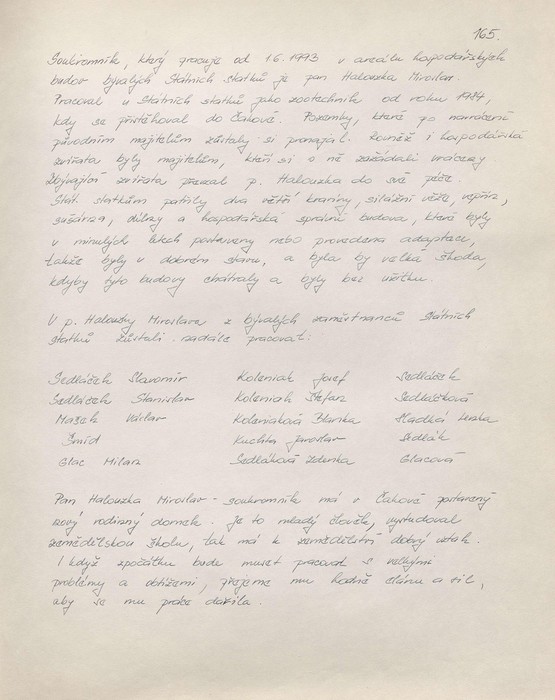 165.
Soukromník, který pracuje od 1.6.1993 v areálu hospodářských
budov bývalých Státních statků je pan Halouzka Miroslav.
Pracoval u Státních statků jako zootechnik od roku 1984,
kdy se přistěhoval do Čakové. Pozemky, které po navrácení
původním majitelům zůstaly si pronajal. Rovněž i hospodářská
zvířata byly majitelům, kteří si o ně zažádali vráceny
Zbývající zvířata převzal p. Halouzka do své péče.
Stát. statkům patřily dva větší kravíny, silážní věže, vepřín,
sušárna, dílny a hospodářská správní budova, které byly
v minulých letech postaveny nebo provedena adaptace,
takže byly v dobrém stavu, a byla by velká škoda,
kdyby tyto budovy chátraly a byly bez užitku.
U p. Halouzky Miroslava z bývalých zaměstnanců Státních
statků zůstali nadále pracovat:
Sedláček Slavomír Koleniak Josef Sedláček
Sedláček Stanislav Koleniak Štefan Sedláčková
Mašek Václav Koleniaková Blanka Hladká Lenka
Šmíd Kuchta Jaroslav Sedlák
Glac Milan Sedláková Zdenka Glacová
Pan Halouzka Miroslav - soukromník má v Čakové postavený
nový rodinný domek. Je to mladý člověk, vystudoval
zemědělskou školu, tak má k zemědělství dobrý vztah.
I když zpočátku bude muset pracovat s velkými
problémy a obtížemi, přejeme mu hodně elánu a sil,
aby se mu práce dařila.